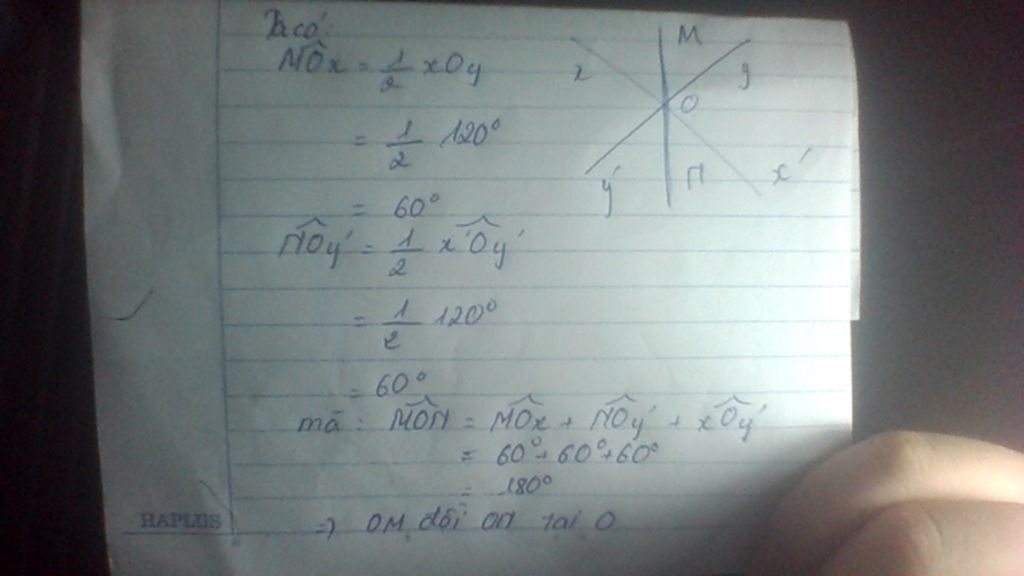 Ta có:
MÔx = 1/2 xOy
= 1/2 120°
= 60°
NOy' = 1/2 x'Oy'
= 1/2 120°
= 60°
mà : MON = MOx + NOy' + xOy'
= 60° + 60° + 60°
= 180°
=> OM đối ON tại O
HAPLUS
M
x
y
O
y'
N
x'